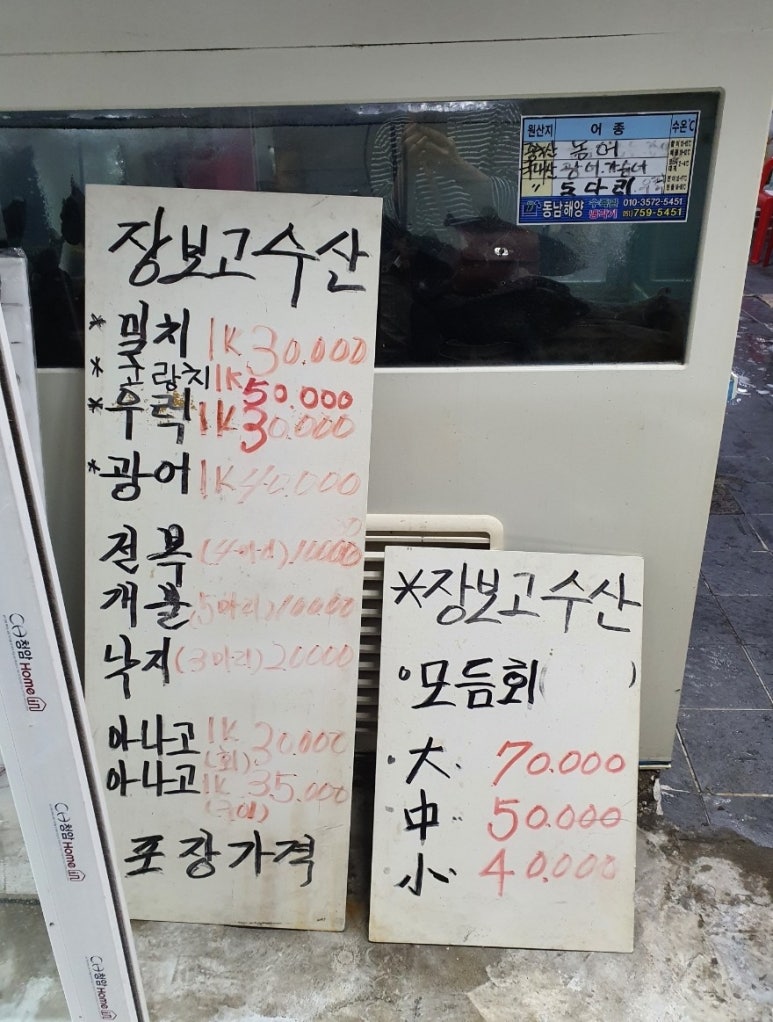 원산지 어종 수온℃
농어
광어
동남해양 010-3572-5451
051)759-5451
장보고수산
* 밀치 1K 30.000
* 고랑치 1K 50.000
* 우럭 1K 30.000
* 광어 1K 40.000
전복 (4마리) 10000
개불 (5마리) 10000
낙지 (3마리) 20000
아나고 1K 30.000
(회)
아나고 1K 35.000
(구이)
포장가격
*장보고수산
모듬회( )
大 70.000
中 50.000
小 40.000
청암Home
청암Home
청암Home